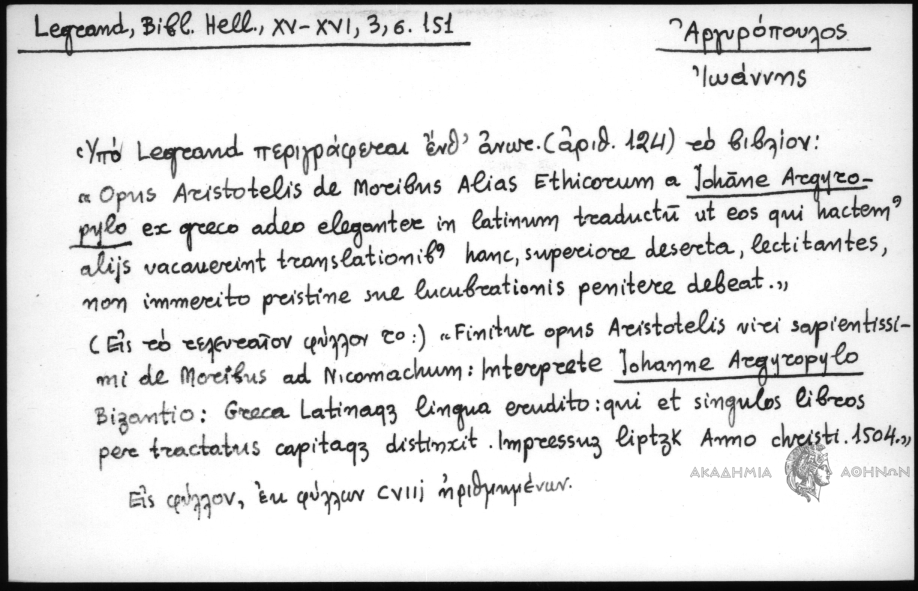 Legrand, Bibl. Hell., XV-XVI, 3, σ. 151
Ἀργυρόπουλος
Ἰωάννης
Ὑπὸ Legrand περιγράφεται ἔνθ' ἀνωτ. (ἀριθ. 124) τὸ βιβλίον:
« Opus Aristotelis de Moribus Alias Ethicorum a Johāne Argyro-
pylo ex greco adeo eleganter in latinum traductū ut eos qui hactemꝰ
alijs vacauerint translationibꝰ hanc, superiore deserta, lectitantes,
non immerito pristine sue lucubrationis penitere debeat.»
(Εἰς τὸ τελευταῖον φύλλον το:) «Finitur opus Aristotelis viri sapientissi-
mi de Moribus ad Nicomachum: Interprete Johanne Argyropylo
Bizantio: Greca Latinaqꝫ lingua erudito: qui et singulos libros
per tractatus capitaqꝫ distinxit. Impressuꝫ liptzk Anno christi. 1504.»
ΑΚΑΔΗΜΙΑ ΑΘΗΝΩΝ
Εἰς φύλλον, ἐκ φύλλων CVIIj ἠριθμημένων.